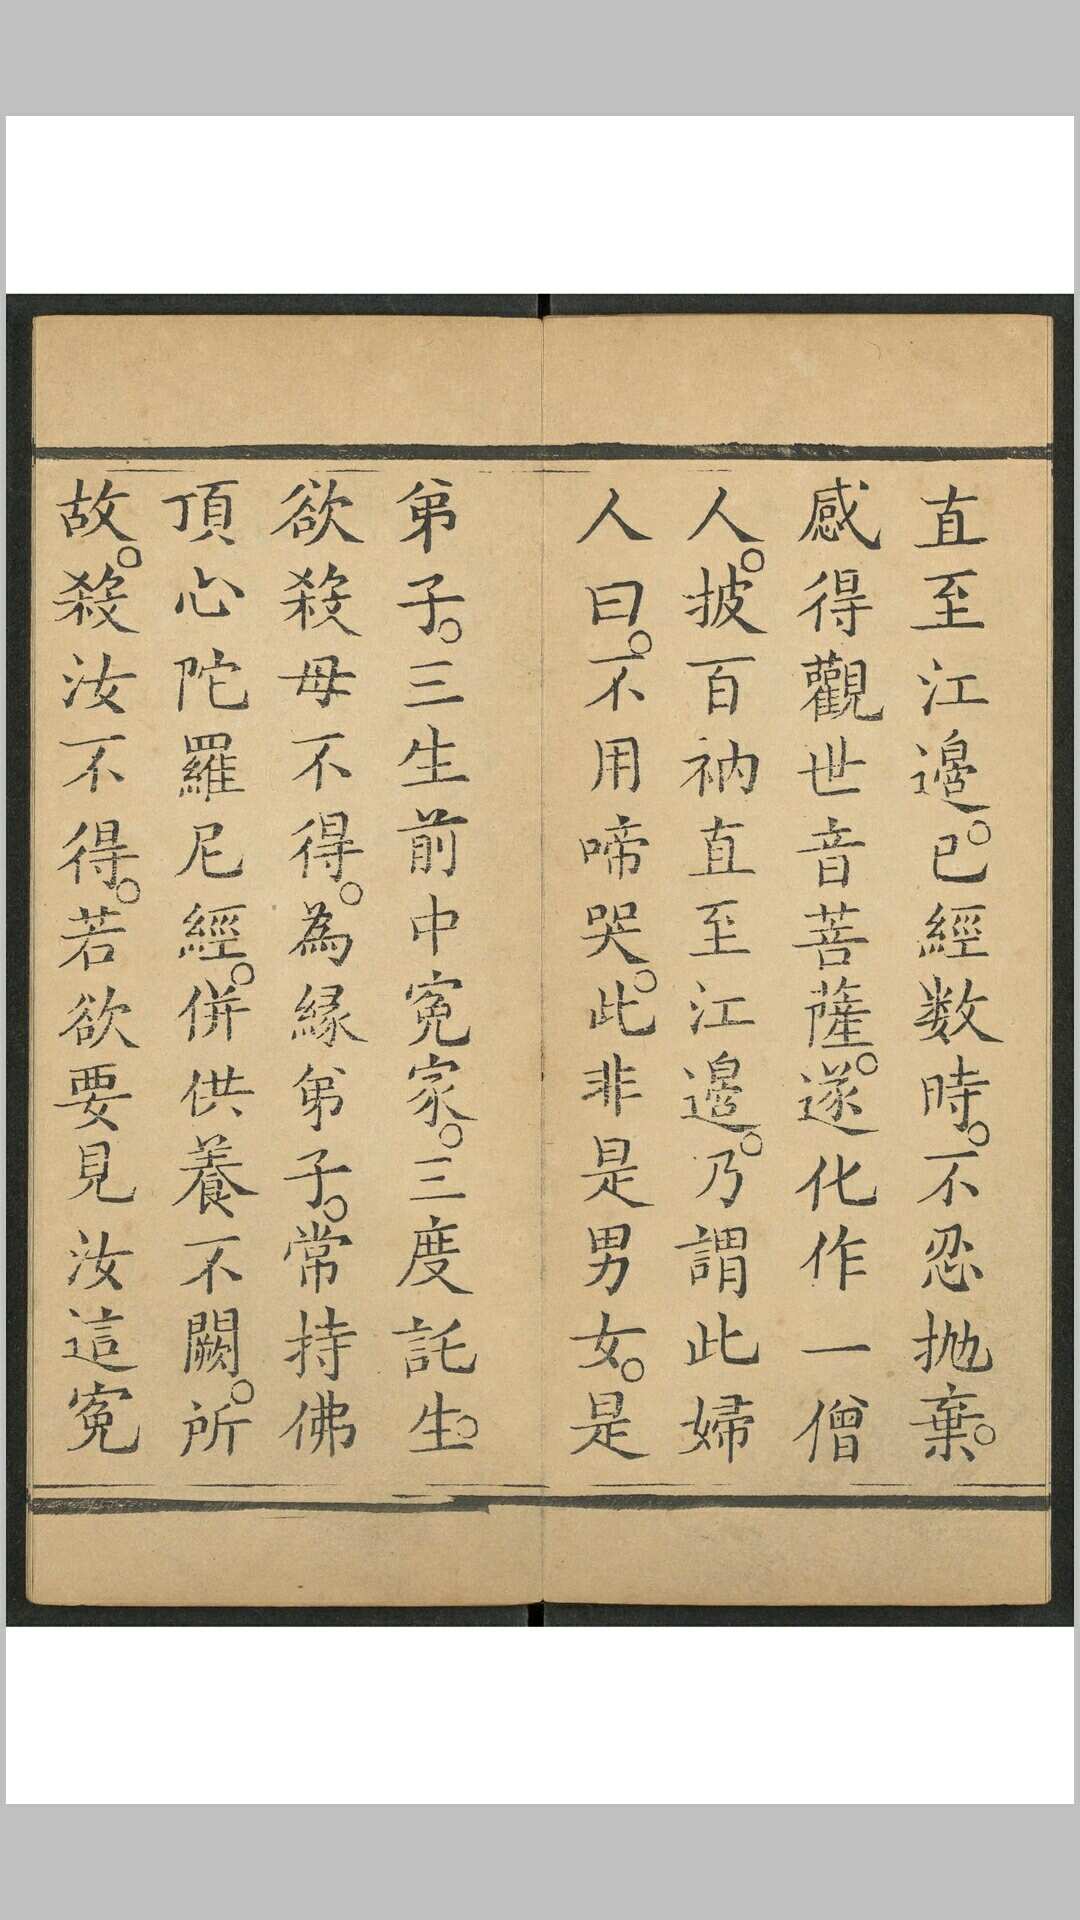 直至江邊。已經数時。不忍抛棄。
感得觀世音菩薩。遂化作一僧
人。披百衲直至江邊。乃謂此婦
人曰。不用啼哭。此非是男女。是
弟子。三生前中寃家。三度託生。
欲殺母不得。為緣弟子。常持佛
頂心陀羅尼經。併供養不闕。所
故。殺汝不得。若欲要見汝這寃